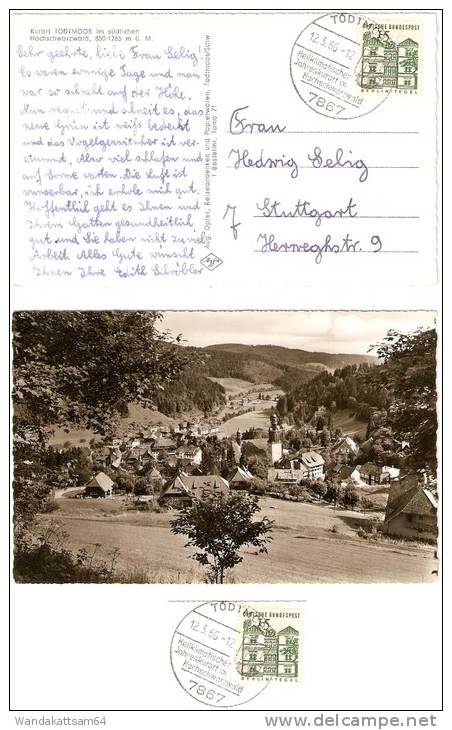 Kurort TODTMOOS im südlichen
Hochschwarzwald, 850-1265 m ü. M.
Sehr geehrte, liebe Frau Selig!
Es waren sonnige Tage und man
war so schnell auf der Höhe.
Nun regnet und schneit es, das
neue Grün ist weiß bedeckt
und das Vogelgezwitscher ist ver-
stummt. Also viel schlafen und
auf Sonne warten. Die Luft ist
wunderbar, ich erhole mich gut.
Hoffentlich geht es Ihnen und
Ihrem Gatten gesundheitlich
gut und Sie haben nicht zu viel
Arbeit. Alles Gute wünscht
Ihnen Ihre Edith Schröbler
Aug. Opfer, Reiseandenken und Papierwaren, Todtmoos/Schw.
1 Bestellnr. Tomo 71
Agfa
TODTMOOS
12.3.66-12
Heilklimatischer
Jahreskurort im
Hochschwarzwald
7867
DEUTSCHE BUNDESPOST
15
BERLIN-TEGEL
Frau
Hedwig Selig
7 Stuttgart
Herweghstr. 9
TODTM
12.3.66-12
Heilklimatischer
Jahreskurort im
Hochschwarzwald
7867
DEUTSCHE BUNDESPOST
15
BERLIN-TEGEL
Wandakattsam64
http://www.delcampe.net